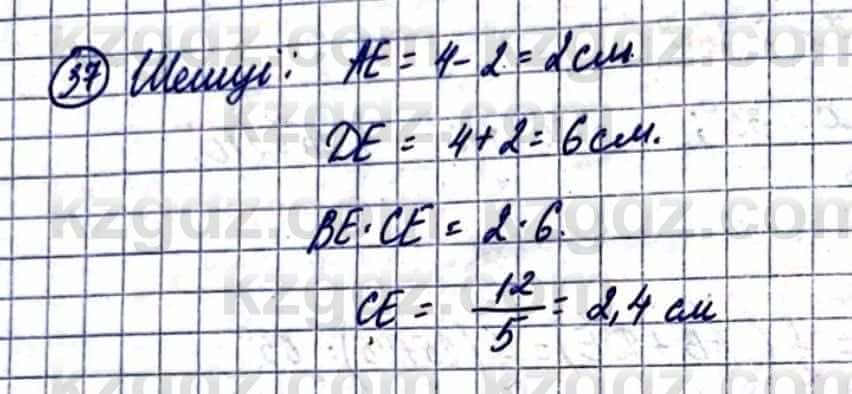 37 Шешуі: AE = 4 - 2 = 2 см
DE = 4 + 2 = 6 см.
BE · CE = 2 · 6.
CE = 12/5 = 2,4 см
kzgdz.com